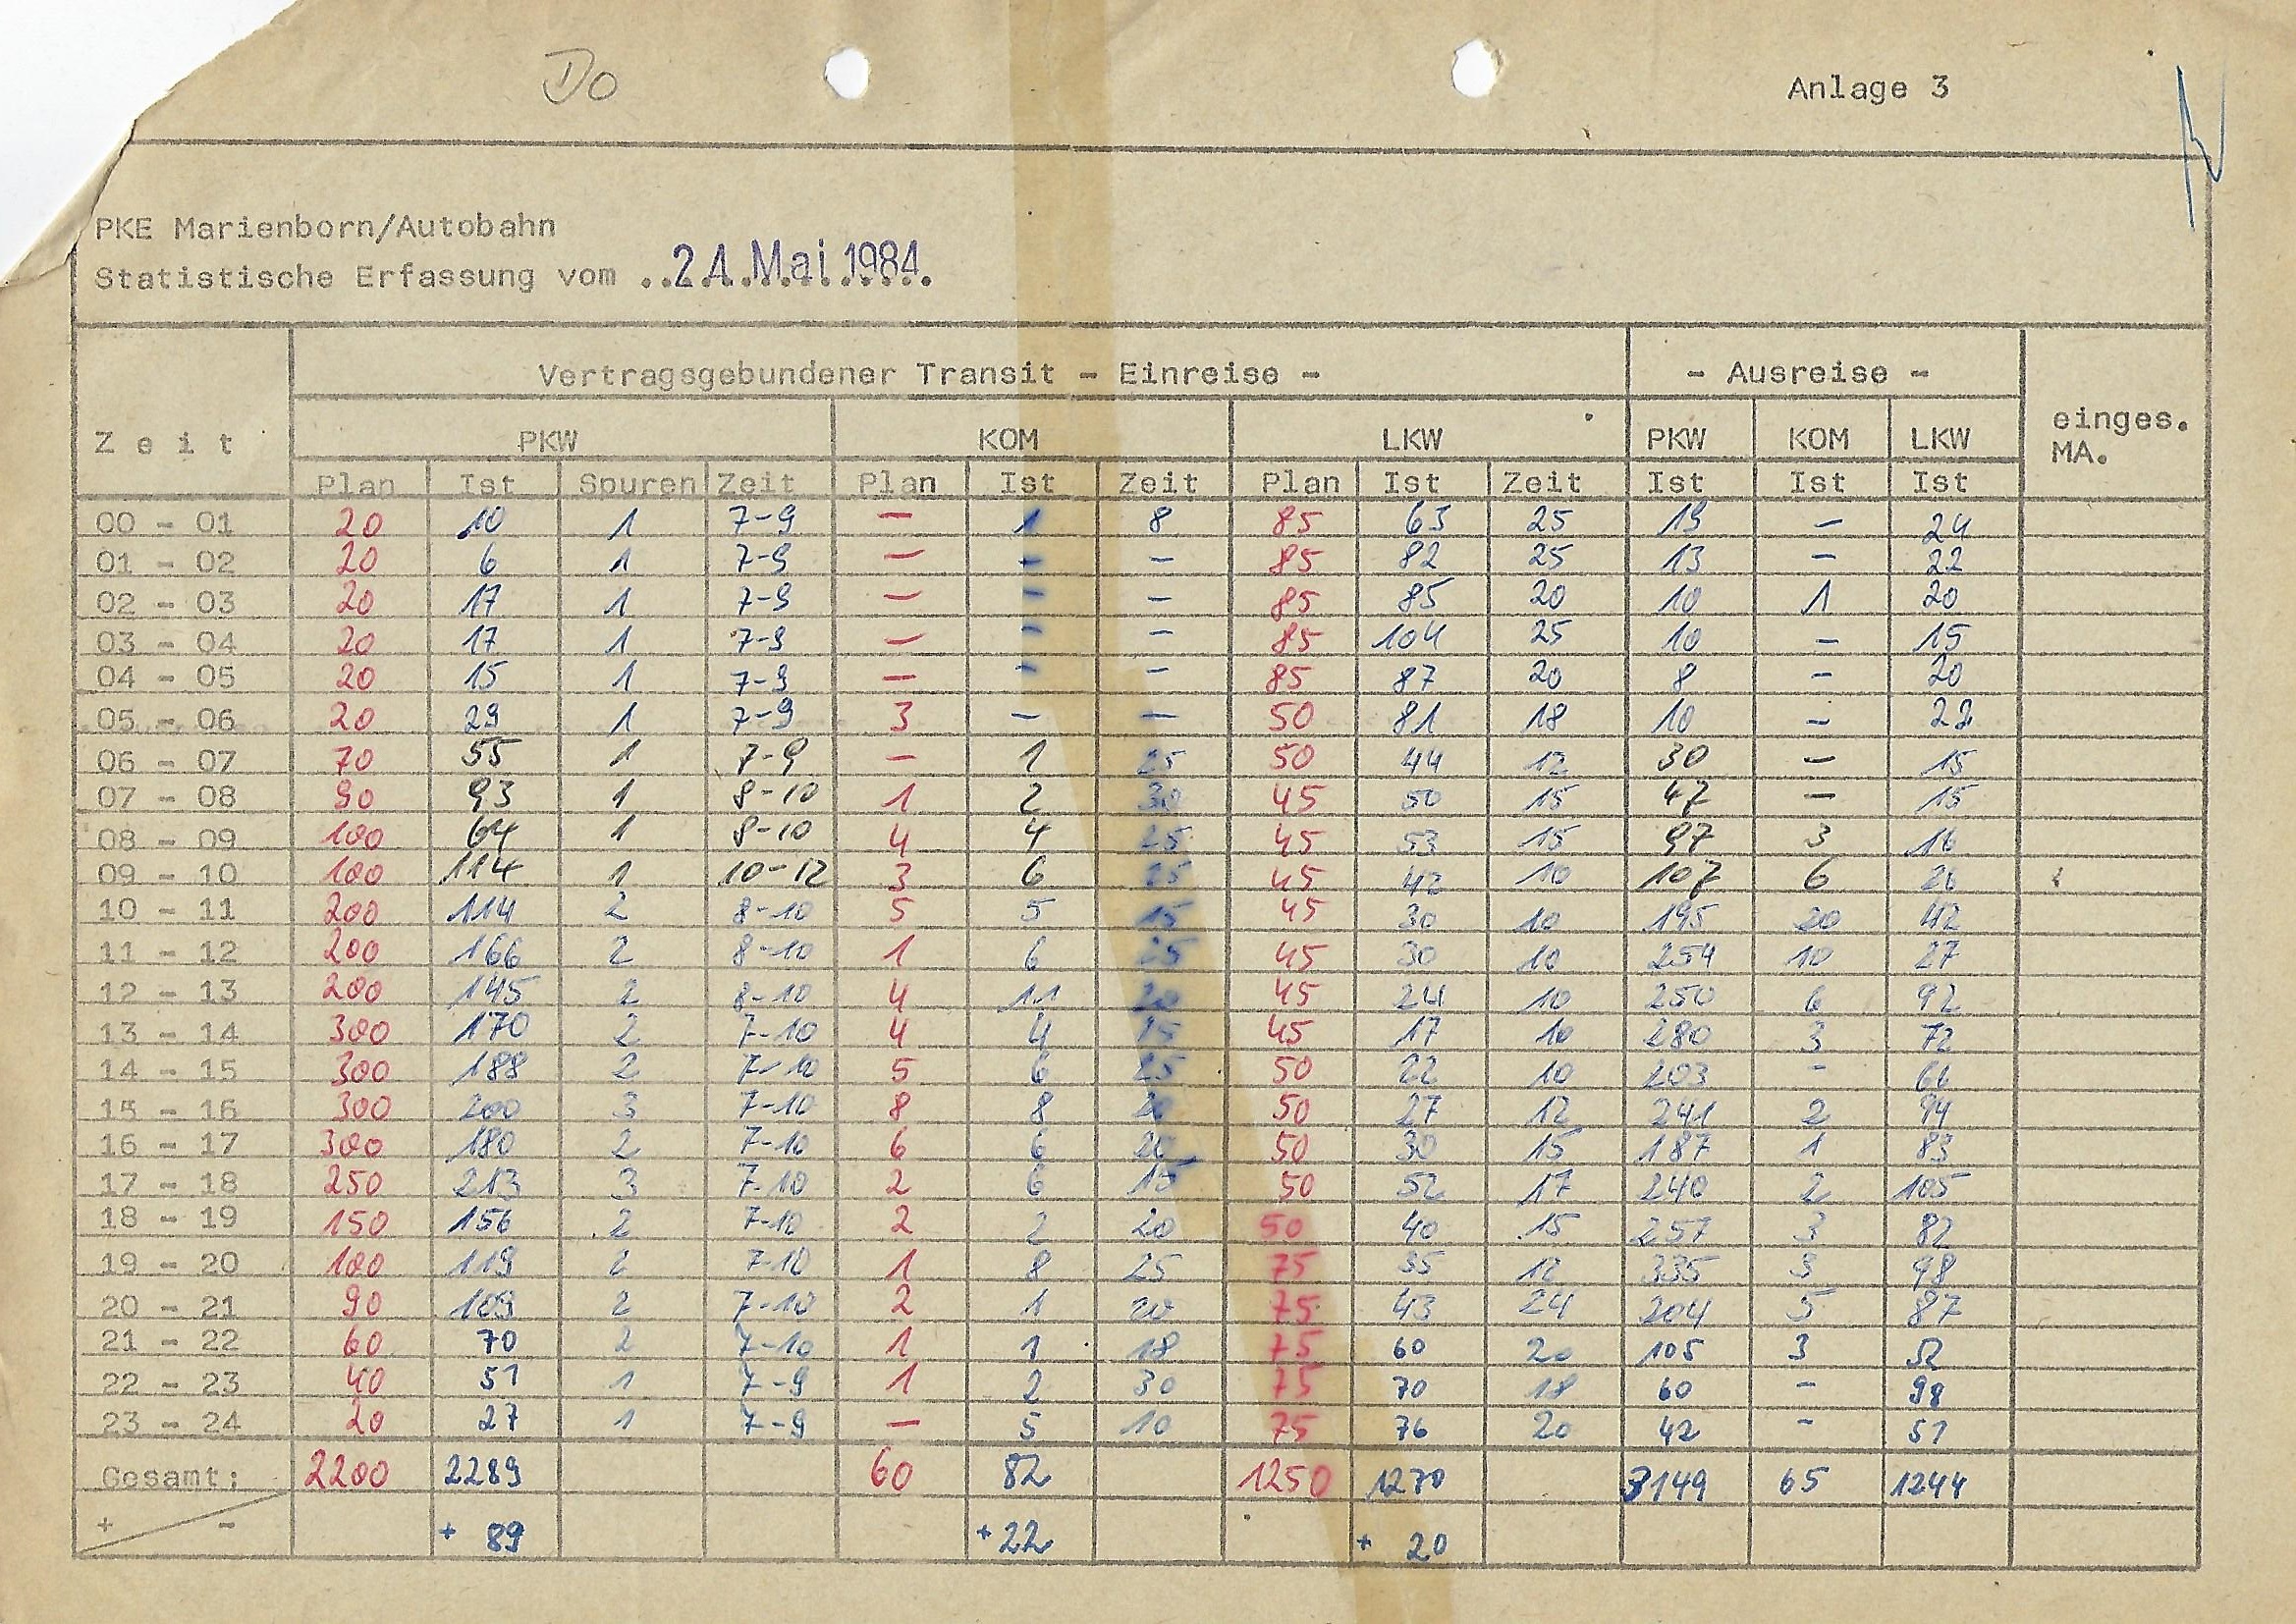 Do
Anlage 3
PKE Marienborn/Autobahn
Statistische Erfassung vom ..24.Mai 1984.
Vertragsgebundener Transit - Einreise - - Ausreise -
Zeit PKW KOM LKW PKW KOM LKW einges. MA.
Plan Ist Spuren Zeit Plan Ist Zeit Plan Ist Zeit Ist Ist Ist
00 - 01 20 10 1 7-9 — 1 8 85 63 25 19 — 24
01 - 02 20 6 1 7-9 — - — 85 82 25 13 — 22
02 - 03 20 17 1 7-9 — - — 85 85 20 10 1 20
03 - 04 20 17 1 7-9 — - — 85 104 25 10 — 15
04 - 05 20 15 1 7-9 — - — 85 87 20 8 — 20
05 - 06 20 29 1 7-9 3 — — 50 81 18 10 — 22
06 - 07 70 55 1 7-9 — 1 25 50 44 12 30 — 15
07 - 08 90 93 1 8-10 1 2 30 45 50 15 47 — 15
08 - 09 100 64 1 8-10 4 4 25 45 53 15 97 3 16
09 - 10 100 114 1 10-12 3 6 25 45 42 10 107 6 26
10 - 11 200 114 2 8-10 5 5 15 45 30 10 195 20 42
11 - 12 200 166 2 8-10 1 6 25 45 30 10 254 10 27
12 - 13 200 145 2 8-10 4 11 20 45 24 10 250 6 92
13 - 14 300 170 2 7-10 4 4 15 45 17 10 280 3 72
14 - 15 300 188 2 7-10 5 6 25 50 22 10 203 - 66
15 - 16 300 200 3 7-10 8 8 50 27 12 241 2 94
16 - 17 300 180 2 7-10 6 6 20 50 30 15 187 1 83
17 - 18 250 213 3 7-10 2 6 15 50 52 17 240 2 105
18 - 19 150 156 2 7-10 2 2 20 50 40 15 257 3 82
19 - 20 100 119 2 7-10 1 8 25 75 35 12 335 3 98
20 - 21 90 109 2 7-10 2 1 20 75 43 24 204 5 87
21 - 22 60 70 2 7-10 1 1 18 75 60 20 105 3 52
22 - 23 40 51 1 7-9 1 2 30 75 70 18 60 - 98
23 - 24 20 27 1 7-9 — 5 10 75 76 20 42 - 51
Gesamt: 2200 2289 60 82 1250 1270 3149 65 1244
+ - + 89 + 22 + 20